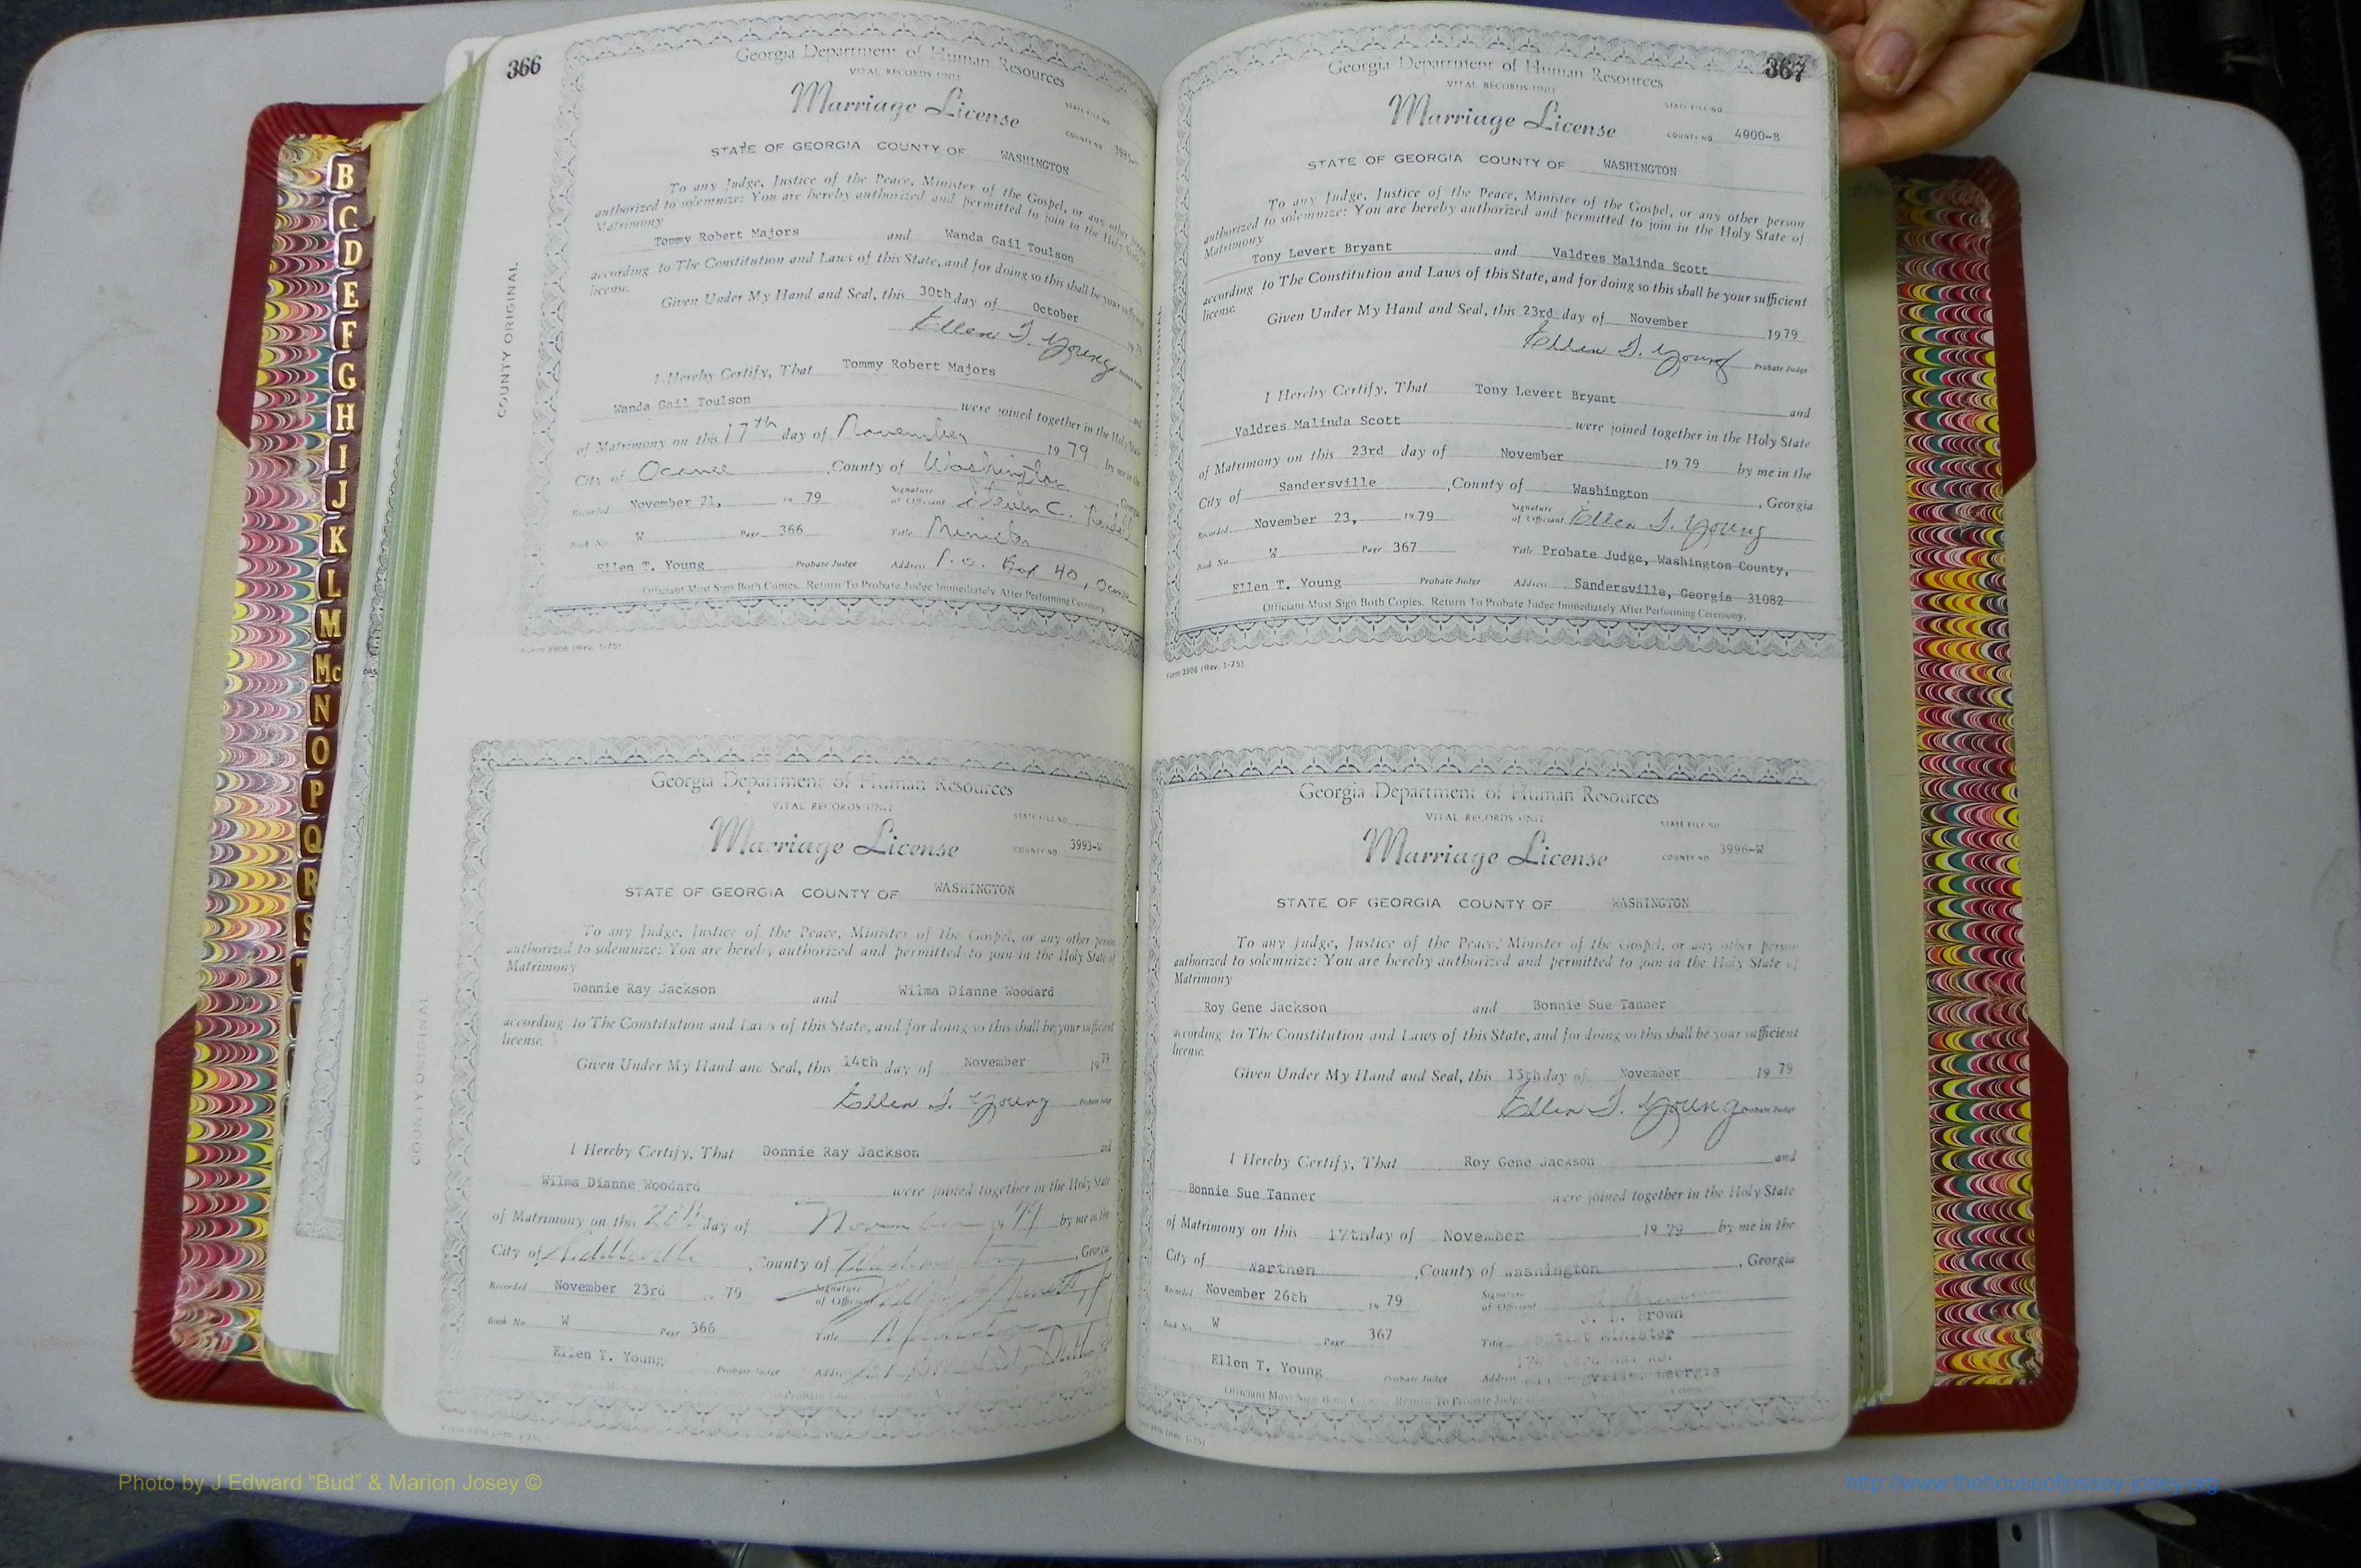 B
C
D
E
F
G
H
I
J
K
L
M
Mc
N
O
P
Q
R
S
366
COUNTY ORIGINAL
Georgia Department of Human Resources
VITAL RECORDS UNIT
STATE FILE NO.
Marriage License
COUNTY NO.
STATE OF GEORGIA COUNTY OF WASHINGTON
To any Judge, Justice of the Peace, Minister of the Gospel, or any other person
authorized to solemnize: You are hereby authorized and permitted to join in the Holy State of
Matrimony
Tommy Robert Majors and Wanda Gail Toulson
according to The Constitution and Laws of this State, and for doing so this shall be your sufficient
license.
Given Under My Hand and Seal, this 30th day of October 1979
Ellen T. Young Probate Judge
I Hereby Certify, That Tommy Robert Majors and
Wanda Gail Toulson were joined together in the Holy State
of Matrimony on this 17th day of November 1979 by me in the
City of Oconee, County of Washington, Georgia
Recorded November 21, 1979 Signature of Officiant Steven C.
Book No. W Page 366 Title Minister
Ellen T. Young Probate Judge Address P.O. Box 40, Oconee
Officiant Must Sign Both Copies. Return To Probate Judge Immediately After Performing Ceremony.
Form 3906 (Rev. 1-75)
COUNTY ORIGINAL
Georgia Department of Human Resources
VITAL RECORDS UNIT
STATE FILE NO.
Marriage License
COUNTY NO. 3993-W
STATE OF GEORGIA COUNTY OF WASHINGTON
To any Judge, Justice of the Peace, Minister of the Gospel, or any other person
authorized to solemnize: You are hereby authorized and permitted to join in the Holy State of
Matrimony
Donnie Ray Jackson and Wilma Dianne Woodard
according to The Constitution and Laws of this State, and for doing so this shall be your sufficient
license.
Given Under My Hand and Seal, this 14th day of November 1979
Ellen T. Young Probate Judge
I Hereby Certify, That Donnie Ray Jackson and
Wilma Dianne Woodard were joined together in the Holy State
of Matrimony on this day of November 1979 by me in the
City of , County of , Georgia
Recorded November 23rd 1979 Signature of Officiant
Book No. W Page 366 Title
Ellen T. Young Probate Judge Address
Form 3906 (Rev. 1-75)
367
Georgia Department of Human Resources
VITAL RECORDS UNIT
STATE FILE NO.
Marriage License
COUNTY NO. 4000-B
STATE OF GEORGIA COUNTY OF WASHINGTON
To any Judge, Justice of the Peace, Minister of the Gospel, or any other person
authorized to solemnize: You are hereby authorized and permitted to join in the Holy State of
Matrimony
Tony Levert Bryant and Valdres Malinda Scott
according to The Constitution and Laws of this State, and for doing so this shall be your sufficient
license.
Given Under My Hand and Seal, this 23rd day of November 1979
Ellen T. Young Probate Judge
I Hereby Certify, That Tony Levert Bryant and
Valdres Malinda Scott were joined together in the Holy State
of Matrimony on this 23rd day of November 1979 by me in the
City of Sandersville, County of Washington, Georgia
Recorded November 23, 1979 Signature of Officiant Ellen T. Young
Book No. W Page 367 Title Probate Judge, Washington County,
Ellen T. Young Probate Judge Address Sandersville, Georgia 31082
Officiant Must Sign Both Copies. Return To Probate Judge Immediately After Performing Ceremony.
Form 3906 (Rev. 1-75)
Georgia Department of Human Resources
VITAL RECORDS UNIT
STATE FILE NO.
Marriage License
COUNTY NO. 3996-W
STATE OF GEORGIA COUNTY OF WASHINGTON
To any Judge, Justice of the Peace, Minister of the Gospel, or any other person
authorized to solemnize: You are hereby authorized and permitted to join in the Holy State of
Matrimony
Roy Gene Jackson and Bonnie Sue Tanner
according to The Constitution and Laws of this State, and for doing so this shall be your sufficient
license.
Given Under My Hand and Seal, this 15th day of November 1979
Ellen T. Young Probate Judge
I Hereby Certify, That Roy Gene Jackson and
Bonnie Sue Tanner were joined together in the Holy State
of Matrimony on this 17th day of November 1979 by me in the
City of Warthen, County of Washington, Georgia
Recorded November 26th 1979 Signature of Officiant
Brown
Book No. W Page 367 Title Minister
Ellen T. Young Probate Judge Address Georgia
Photo by J Edward “Bud” & Marion Josey ©
http://www.thehouseofjossey-josey.org